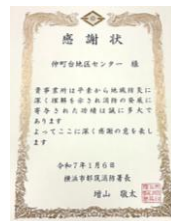 感謝状
仲町台地区センター 様
貴事業所は平素から地域防災に
深く理解を示され消防の発展に
寄与された功績は誠に多大で
あります
よってここに深く感謝の意を表し
ます
令和7年1月6日
横浜市都筑消防署長
増山 敬太